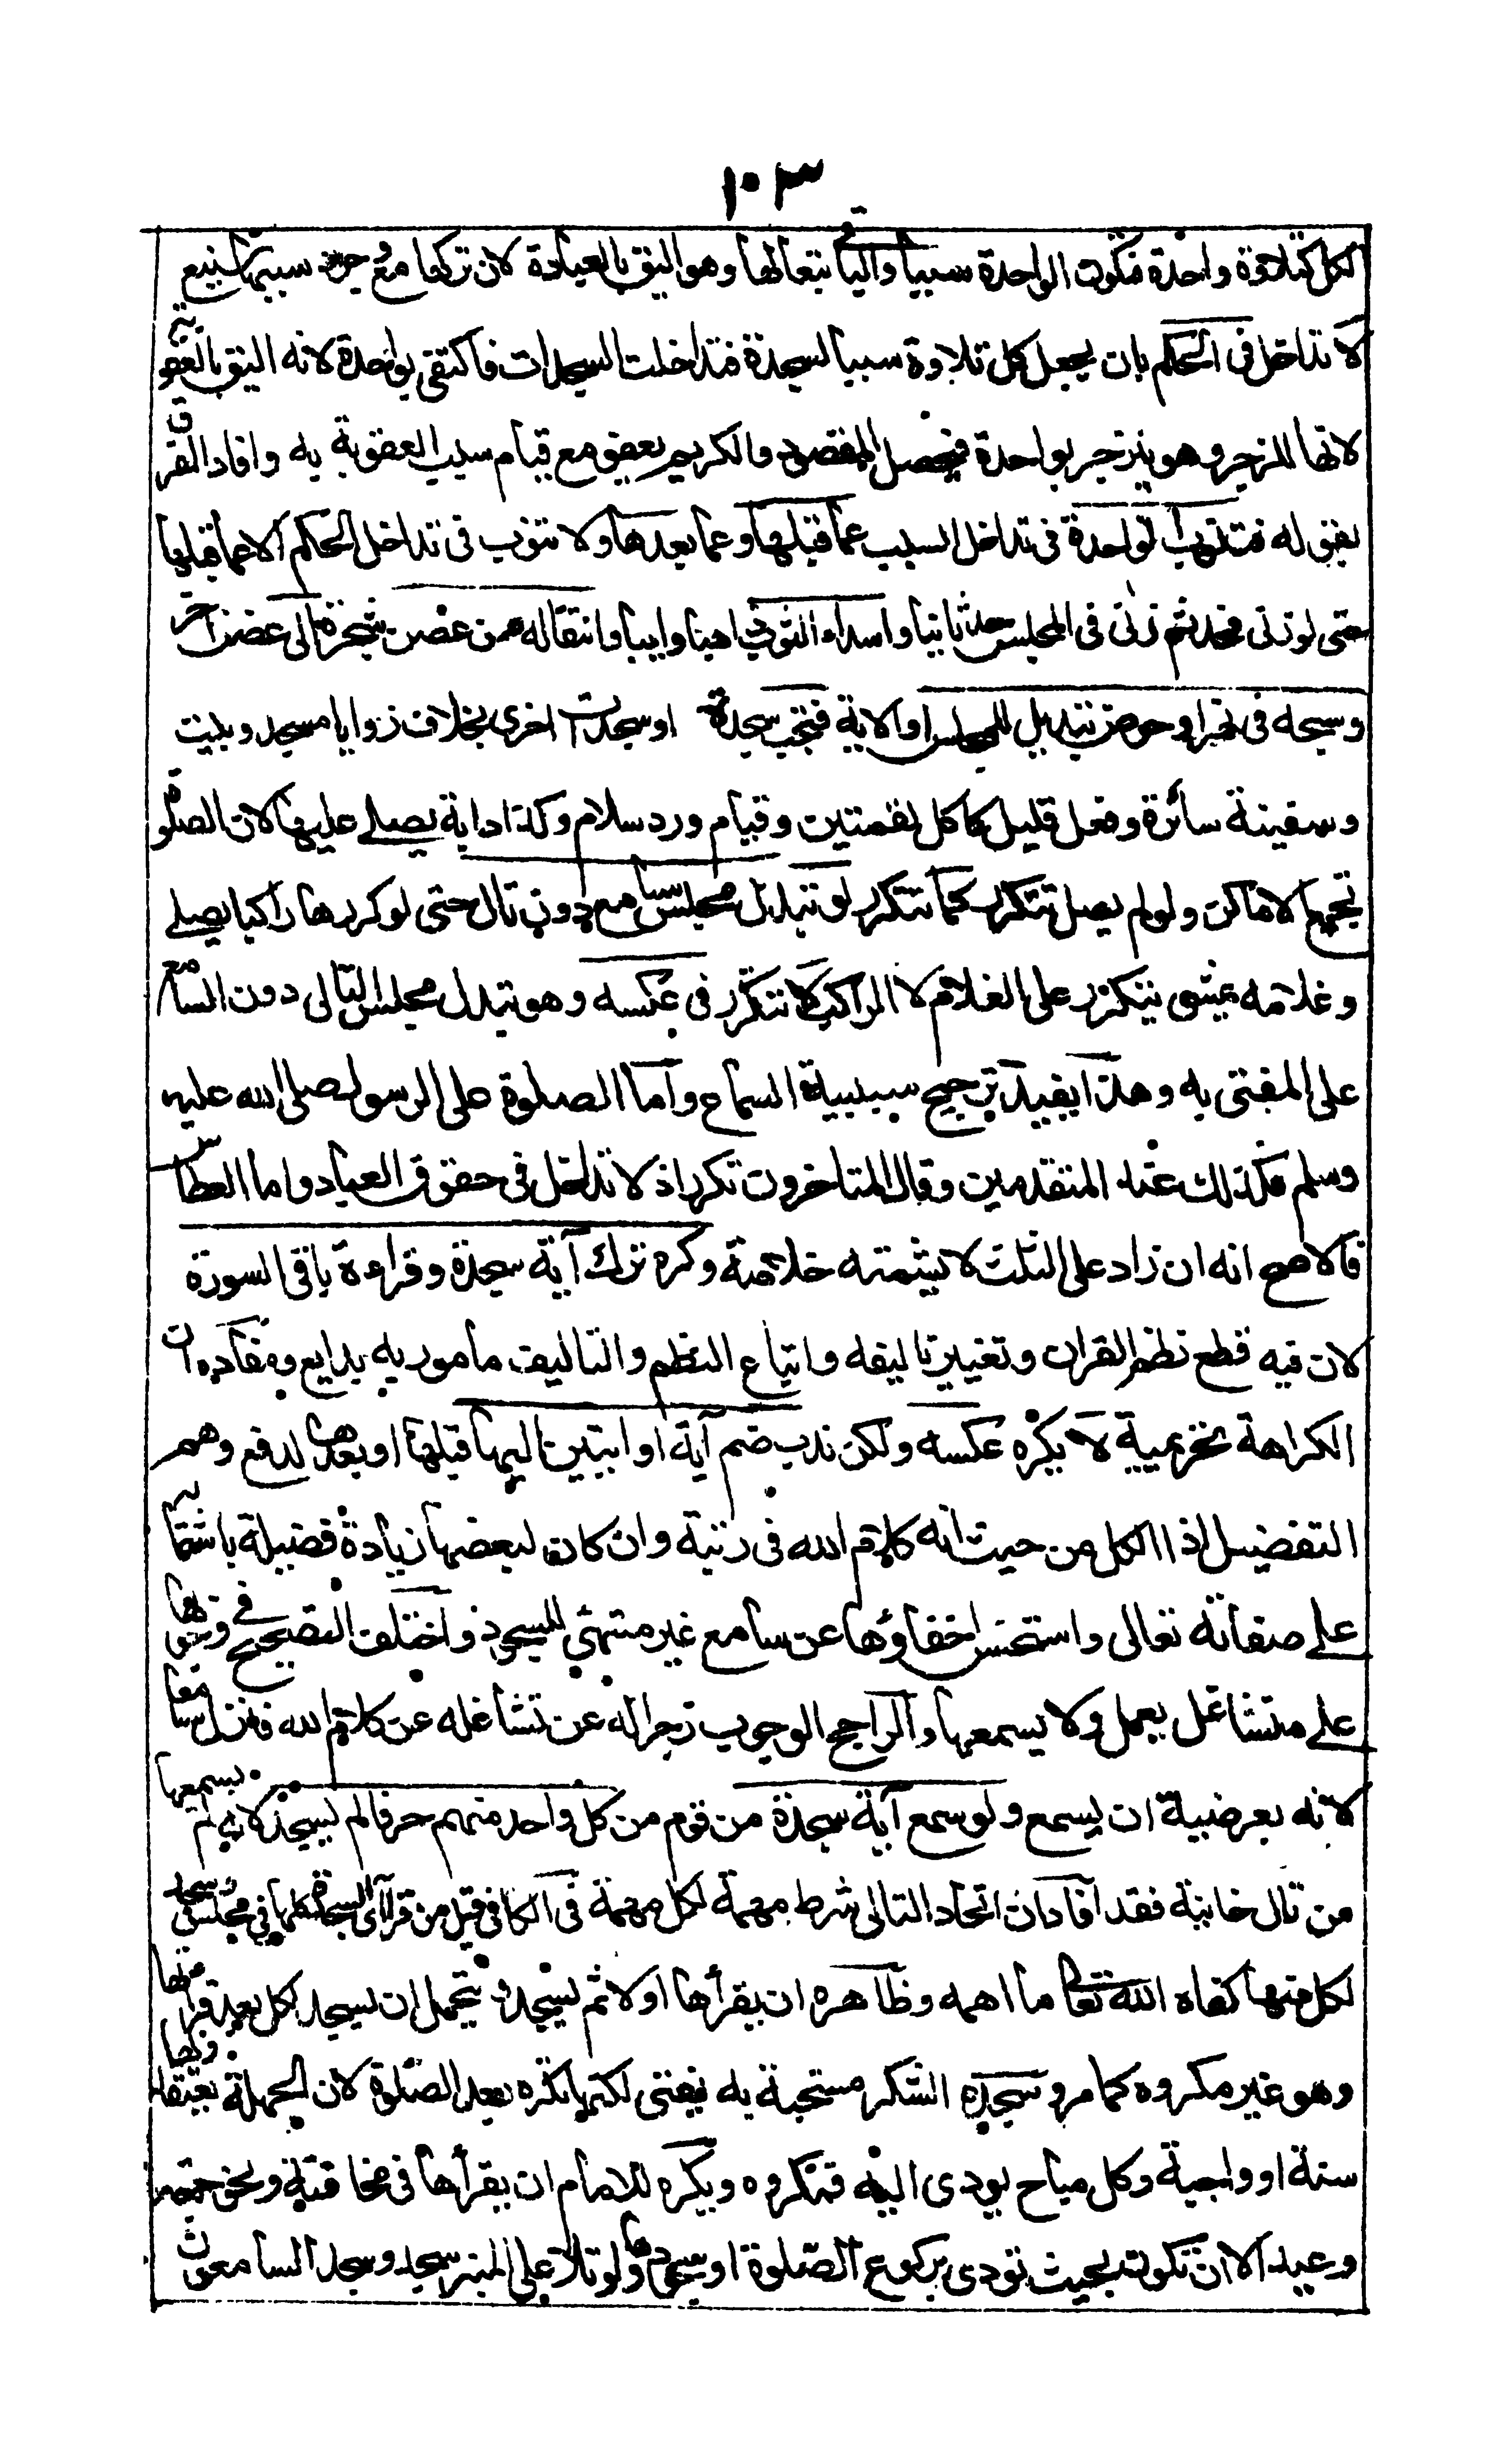 ١٠٣
الكل كتلاوة واحدة فتكون الواحدة سببا والباقي تبعا لها وهو اليق بالعبادة لان تركها مع وجود سببها شنيع
لا تداخل في الحكم بان يجعل كل تلاوة سببا لسجدة فتداخلت السجدات فاكتفى بواحدة لانه اليق بالعقوبة
لانها للزجر وهو ينزجر بواحدة فيحصل المقصود والكريم يعفو مع قيام سبب العقوبة به وافاد الفرق
بقوله فتنوب الواحدة في تداخل السبب عما قبلها وعما بعدها ولا تنوب في تداخل الحكم الا عما قبلها
حتى لو زنى فحد ثم زنى في المجلس حد ثانيا واسداء الثوب ذاهبا وايبا وانتقاله من غصن شجرة الى غصن آخر
وسبحه في نهر او حوض تبديل للمجلس او الاية فتجب سجدة او سجدات اخرى بخلاف زوايا مسجد وبيت
وسفينة سائرة وفعل قليل كاكل لقمتين وقيام ورد سلام وكذا دابة يصلي عليها لان الصلوة
تجمع الاماكن ولو لم يصل تتكرر كما تتكرر لو تبدل مجلس سامع دون تال حتى لو كررها راكبا يصلي
وغلامه يمشي تتكرر على الغلام لا الراكب لا تتكرر في عكسه وهو تبدل مجلس التالي دون السامع
على المفتى به وهذا يفيد ترجيح سببية السماع واما الصلوة على الرسول صلى الله عليه
وسلم فكذلك عند المتقدمين وقال المتاخرون تكرر اذ لا تداخل في حقوق العباد واما العطاس
فالاصح انه ان زاد على الثلث لا يشمته خلاصة وكره ترك آية سجدة وقراءة باقي السورة
لان فيه قطع نظم القران وتغيير تاليفه واتباع النظم والتاليف مأمور به بدايع ومفاده ان
الكراهة تحريمية لا يكره عكسه ولكن ندب ضم آية او ايتين اليها قبلها او بعدها لدفع وهم
التفضيل اذ الكل من حيث انه كلام الله في رتبة وان كان لبعضها زيادة فضيلة باشتماله
على صفاته تعالى واستحسن اخفاؤها عن سامع غير متهيئ للسجود واختلف التصحيح في وجوبها
على متشاغل بعمل ولا يسمعها والراجح الوجوب زجرا له عن تشاغله عن كلام الله فنزل سامعا
لانه بعرضية ان يسمع ولو سمع آية سجدة من قوم من كل واحد منهم حرفا لم يسجد لانه لم يسمعها
من تال خانية فقد افاد ان اتحاد التالي شرط مهمة لكل مهمة في الكافي قيل من قرأ آي السجدة كلها في مجلس وسجد
لكل منها كفاه الله تعالى ما اهمه وظاهره ان يقرأها اولا ثم يسجد ويحتمل ان يسجد لكل بعد قراءتها
وهو غير مكروه كما مر وسجدة الشكر مستحبة به يفتى لكنها تكره بعد الصلوة لان الجهلة يعتقدونها
سنة او واجبة وكل مباح يودى اليه فمكروه ويكره للامام ان يقرأها في مخافتة ونحو جمعة
وعيد الا ان تكون بحيث تودى بركوع الصلوة او سجودها ولو تلا على المنبر سجد وسجد السامعون